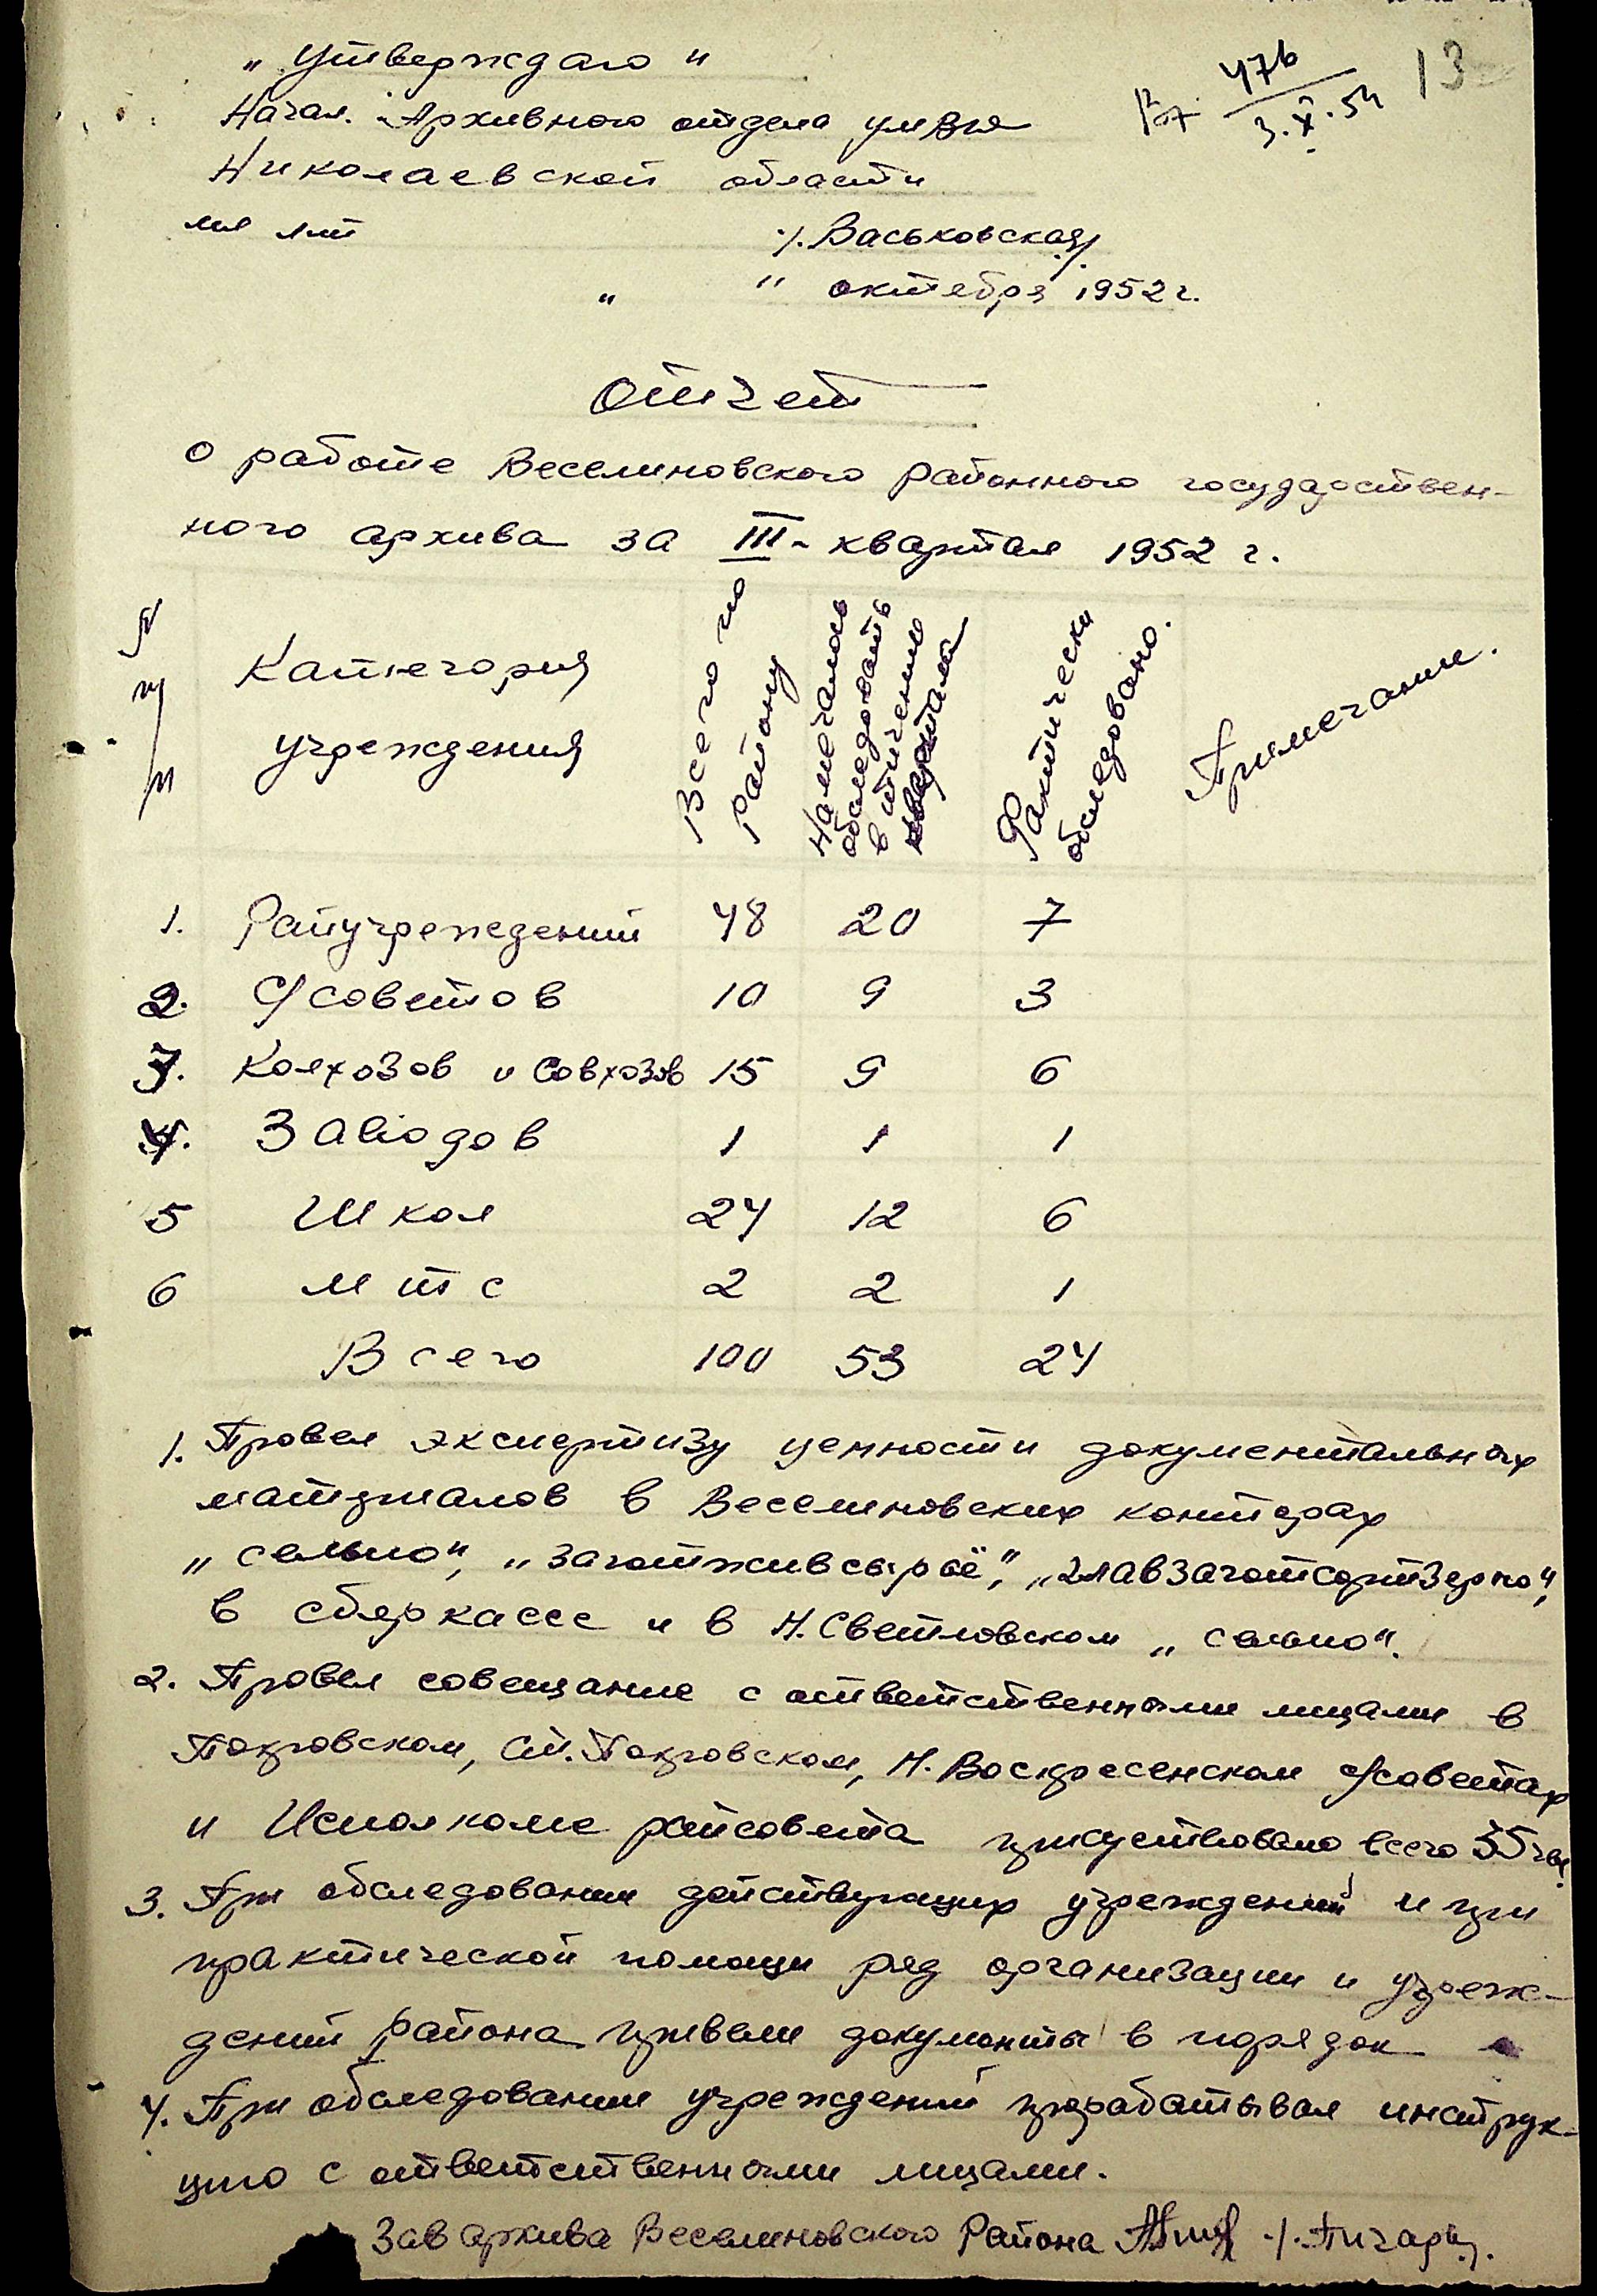 „Утверждаю"
Вх. 476
3.X.52
13
Начал. Архивного отдела УМВД
Николаевской области
мл л-нт /.Васьковская/.
„ " октебря 1952 г.
Отчет
о работе Веселиновского районного государствен-
ного архива за III-квартал 1952 г.
№ п/п
Категория учреждения
Всего по району
Намечалось обследовать в течению квартала
Фактически обследовано.
Примечание.
1. Райучреждений 48 20 7
2. С/советов 10 9 3
3. Колхозов и Совхозов 15 9 6
4. Заводов 1 1 1
5 Школ 24 12 6
6 МТС 2 2 1
Всего 100 53 24
1. Провел экспертизу ценности документальных
материалов в Веселиновских конторах
„сельпо", „Заготживсырьё", „Главзаготсортзерно",
в сберкассе и в Н.Светловском „сельпо".
2. Провел совещание с ответственными лицами в
Покровском, Ст.Покровском, Н.Воскресенском с/советах
и Исполкоме райсовета присуствовало всего 35 чел.
3. При обследовании действующих учреждений и при
практической помощи ряд организации и учреж-
дений района привели документы в порядок
4. При обследовании учреждений прорабатывал инструк-
цию с ответственными лицами.
Зав архива Веселиновского Района /.Пичар/.